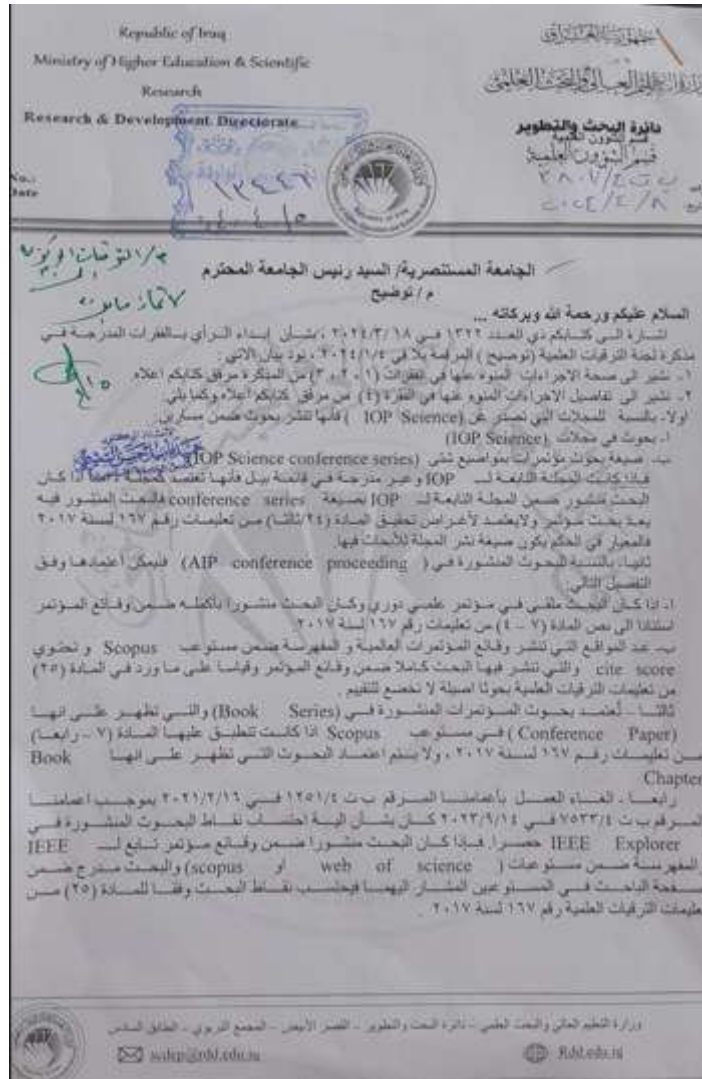 Republic of Iraq
Ministry of Higher Education & Scientific
Research
Research & Development Directorate
No.:
Date
جمهورية العراق
وزارة التعليم العالي والبحث العلمي
دائرة البحث والتطوير
قسم الشؤون العلمية
الجامعة المستنصرية/ السيد رئيس الجامعة المحترم
م / توضيح
السلام عليكم ورحمة الله وبركاته ...
اشارة الى كتابكم ذي العدد ١٣٢٢ في ٢٠٢٤/٣/١٨ ، بشأن إبداء الرأي بالفقرات المدرجة في
مذكرة لجنة الترقيات العلمية (توضيح) المرقمة بلا في ٢٠٢٤/١/٤ ، نود بيان الاتي :
١. نشير الى صحة الاجراءات المنوه عنها في الفقرات (١ ، ٢ ، ٣) من المذكرة مرفق كتابكم اعلاه
٢. نشير الى تفاصيل الاجراءات المنوه عنها في الفقرة (٤) من مرفق كتابكم اعلاه وكما يلي:
اولا- بالنسبة للمجلات التي تصدر عن (IOP Science) فأنها تنشر بحوث ضمن مسارين:
أ- بحوث في مجلات (IOP Science)
ب- صيغة بحوث مؤتمرات بمواضيع شتى (IOP Science conference series)
فإذا كانت المجلة التابعة لـ IOP وغير مدرجة في قائمة بيل فأنها تعتمد كمجلة ، اما اذا كان
البحث منشور ضمن المجلة التابعة لـ IOP بصيغة conference series فالبحث المنشور فيه
يعد بحث مؤتمر ولايعتمد لأغراض تحقيق المادة (٢٤/ثالثا) من تعليمات رقم ١٦٧ لسنة ٢٠١٧
فالمعيار في الحكم يكون صيغة نشر المجلة للأبحاث فيها.
ثانيا- بالنسبة للبحوث المنشورة في (AIP conference proceeding) فيمكن اعتمادها وفق
التفصيل التالي:
أ- اذا كان البحث ملقى في مؤتمر علمي دوري وكان البحث منشورا بأكمله ضمن وقائع المؤتمر
استنادا الى نص المادة (٧ – ٤) من تعليمات رقم ١٦٧ لسنة ٢٠١٧
ب- عد المواقع التي تنشر وقائع المؤتمرات العالمية و المفهرسة ضمن مستوعب Scopus و تحتوي
cite score والتي تنشر فيها البحث كاملا ضمن وقائع المؤتمر وقياسا على ما ورد في المادة (٢٥)
من تعليمات الترقيات العلمية بحوثا اصيلة لا تخضع للتقييم .
ثالثا – تعتمد بحوث المؤتمرات المنشورة في (Book Series) والتي تظهر على انها
(Conference Paper) في مستوعب Scopus اذا كانت تنطبق عليها المادة (٧ – رابعا)
من تعليمات رقم ١٦٧ لسنة ٢٠١٧ ، ولا يتم اعتماد البحوث التي تظهر على انها Book
Chapter
رابعا - الغاء العمل بأعمامنا المرقم ب ت ١٢٥١/٤ في ٢٠٢١/٢/١٦ بموجب اعمامنا
المرقم ب ت ٧٥٣٣/٤ في ٢٠٢٣/٩/١٤ كان بشأن الية احتساب نقاط البحوث المنشورة في
IEEE Explorer حصرا. فإذا كان البحث منشورا ضمن وقائع مؤتمر تابع لـ IEEE
المفهرسة ضمن مستوعبات (web of science او scopus) والبحث مدرج ضمن
صفحة الباحث في المستوعبين المشار اليهما فيحتسب نقاط البحث وفقا للمادة (٢٥) من
تعليمات الترقيات العلمية رقم ١٦٧ لسنة ٢٠١٧ .
وزارة التعليم العالي والبحث العلمي - دائرة البحث والتطوير - القصر الأبيض - المجمع التربوي - الطابق السادس
Rdd.edu.iq